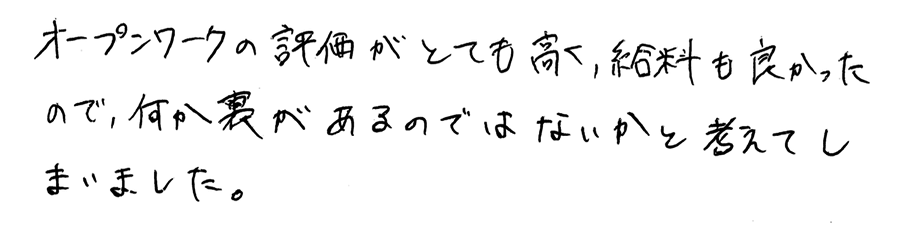 オープンワークの評価がとても高く,給料も良かった
ので,何か裏があるのではないかと考えてし
まいました。